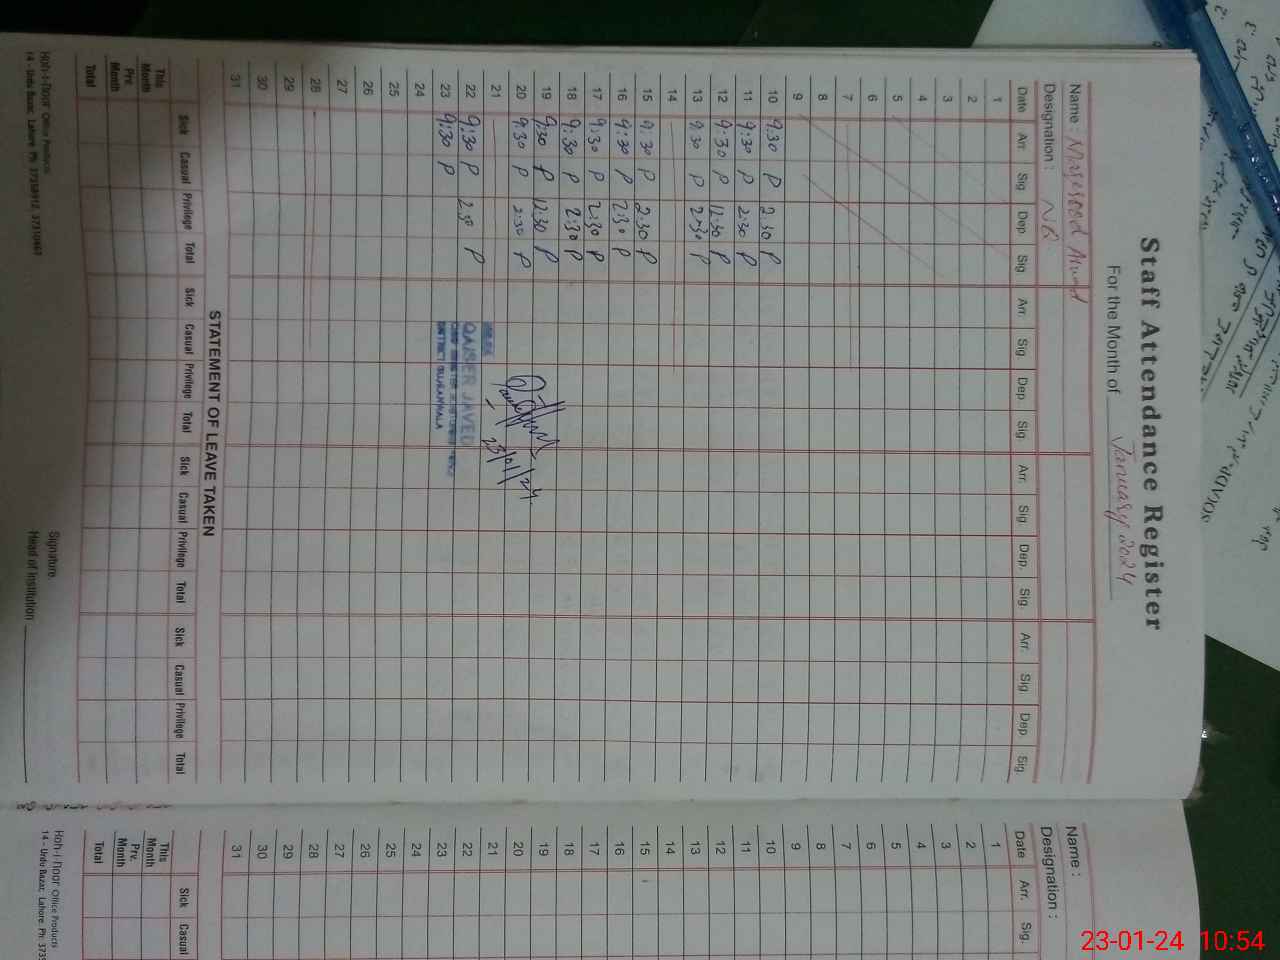 Staff Attendance Register
For the Month of January 2024
Name :
Designation : NQ
Date Arr. Sig. Dep. Sig. Arr. Sig. Dep. Sig. Arr. Sig. Dep. Sig. Arr. Sig. Dep. Sig.
1
2
3
4
5
6
7
8
9
10 9:30 P 2:30 P
11 9:30 P 2:30 P
12 9:30 P 12:30 P
13 9:30 P 2:30 P
14
15 9:30 P 2:30 P
16 9:30 P 2:30 P
17 9:30 P 2:30 P
18 9:30 P 2:30 P
19 9:30 P 12:30 P
20 9:30 P 2:30 P
21
22 9:30 P 2:30 P
23 9:30 P
24
25
26
27
28
29
30
31
23/01/24
QAISER JAVED
DISTRICT GUJRANWALA
STATEMENT OF LEAVE TAKEN
Sick Casual Privilege Total Sick Casual Privilege Total Sick Casual Privilege Total Sick Casual Privilege Total
This Month
Prv. Month
Total
Signature
Head of Institution
Koh-i-Noor Office Products
14 - Urdu Bazar, Lahore. Ph:
Name :
Designation :
Date Arr. Sig.
1
2
3
4
5
6
7
8
9
10
11
12
13
14
15
16
17
18
19
20
21
22
23
24
25
26
27
28
29
30
31
Sick Casual
This Month
Prv. Month
Total
Koh-i-Noor Office Products
14 - Urdu Bazar, Lahore. Ph:
23-01-24 10:54